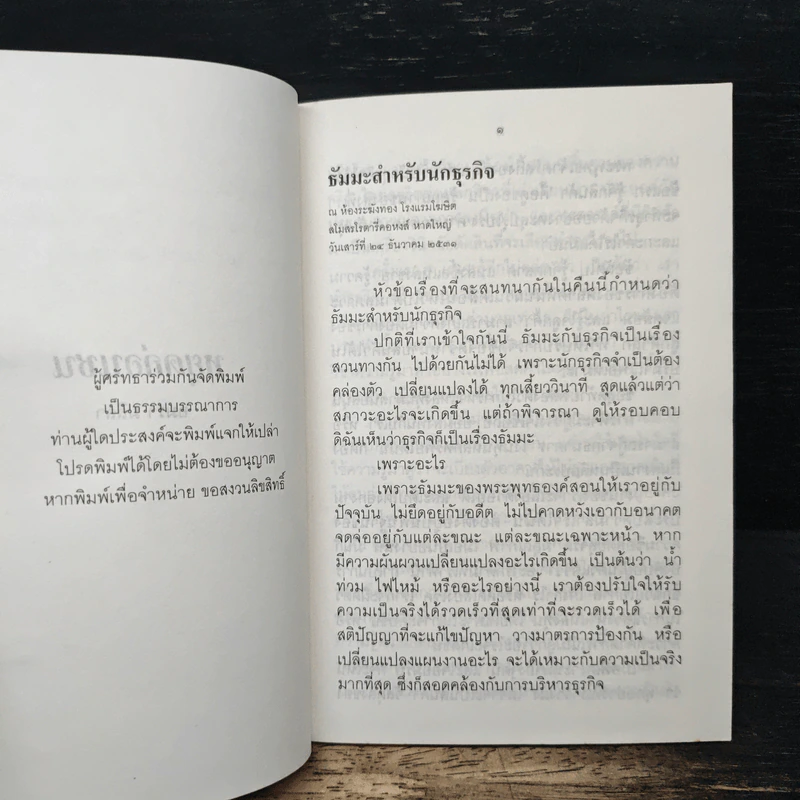 ผู้ศรัทธาร่วมกันจัดพิมพ์
เป็นธรรมบรรณาการ
ท่านผู้ใดประสงค์จะพิมพ์แจกให้เปล่า
โปรดพิมพ์ได้โดยไม่ต้องขออนุญาต
หากพิมพ์เพื่อจำหน่าย ขอสงวนลิขสิทธิ์
๑
ธัมมะสำหรับนักธุรกิจ
ณ ห้องระฆังทอง โรงแรมโฆษิต
สโมสรโรตารี่คอหงส์ หาดใหญ่
วันเสาร์ที่ ๒๔ ธันวาคม ๒๕๓๑
หัวข้อเรื่องที่จะสนทนากันในคืนนี้กำหนดว่า
ธัมมะสำหรับนักธุรกิจ
ปกติที่เราเข้าใจกันนี่ ธัมมะกับธุรกิจเป็นเรื่อง
สวนทางกัน ไปด้วยกันไม่ได้ เพราะนักธุรกิจจำเป็นต้อง
คล่องตัว เปลี่ยนแปลงได้ ทุกเสี้ยววินาที สุดแล้วแต่ว่า
สภาวะอะไรจะเกิดขึ้น แต่ถ้าพิจารณา ดูให้รอบคอบ
ดิฉันเห็นว่าธุรกิจก็เป็นเรื่องธัมมะ
เพราะอะไร
เพราะธัมมะของพระพุทธองค์สอนให้เราอยู่กับ
ปัจจุบัน ไม่ยึดอยู่กับอดีต ไม่ไปคาดหวังเอากับอนาคต
จดจ่ออยู่กับแต่ละขณะ แต่ละขณะเฉพาะหน้า หาก
มีความผันผวนเปลี่ยนแปลงอะไรเกิดขึ้น เป็นต้นว่า น้ำ
ท่วม ไฟไหม้ หรืออะไรอย่างนี้ เราต้องปรับใจให้รับ
ความเป็นจริงได้รวดเร็วที่สุดเท่าที่จะรวดเร็วได้ เพื่อ
สติปัญญาที่จะแก้ไขปัญหา วางมาตรการป้องกัน หรือ
เปลี่ยนแปลงแผนงานอะไร จะได้เหมาะกับความเป็นจริง
มากที่สุด ซึ่งก็สอดคล้องกับการบริหารธุรกิจ